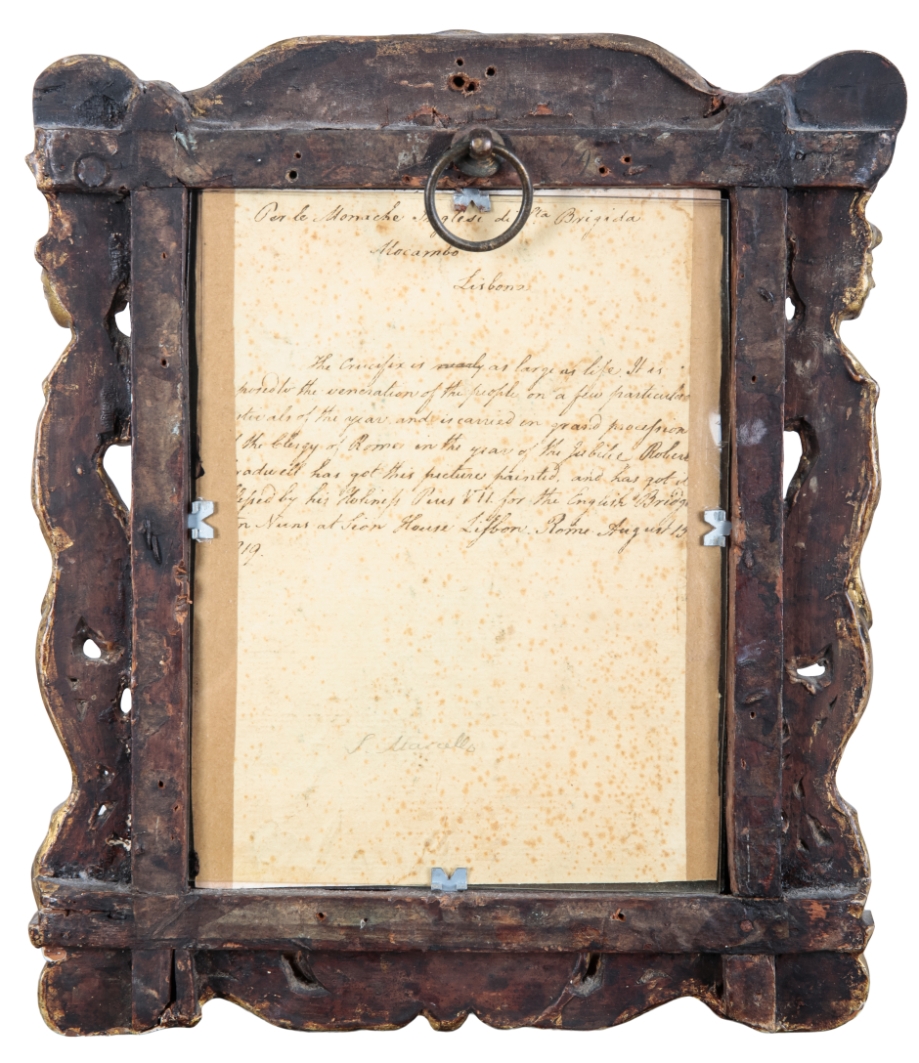 Per le Monache Inglesi di Sta Brigida
Mocambo
Lisbona
The Crucifix is nearly as large as life. It is
posed to the veneration of the people on a few particular
stivals of the year, and is carried in grand procession
the Clergy of Rome in the year of the Jubilie. Robert
radwell has got this picture painted, and has got it
lessed by his Holiness Pius VII. for the English Bridg
n Nuns at Sion House Lisbon. Rome August 15
819.
S. Marcello